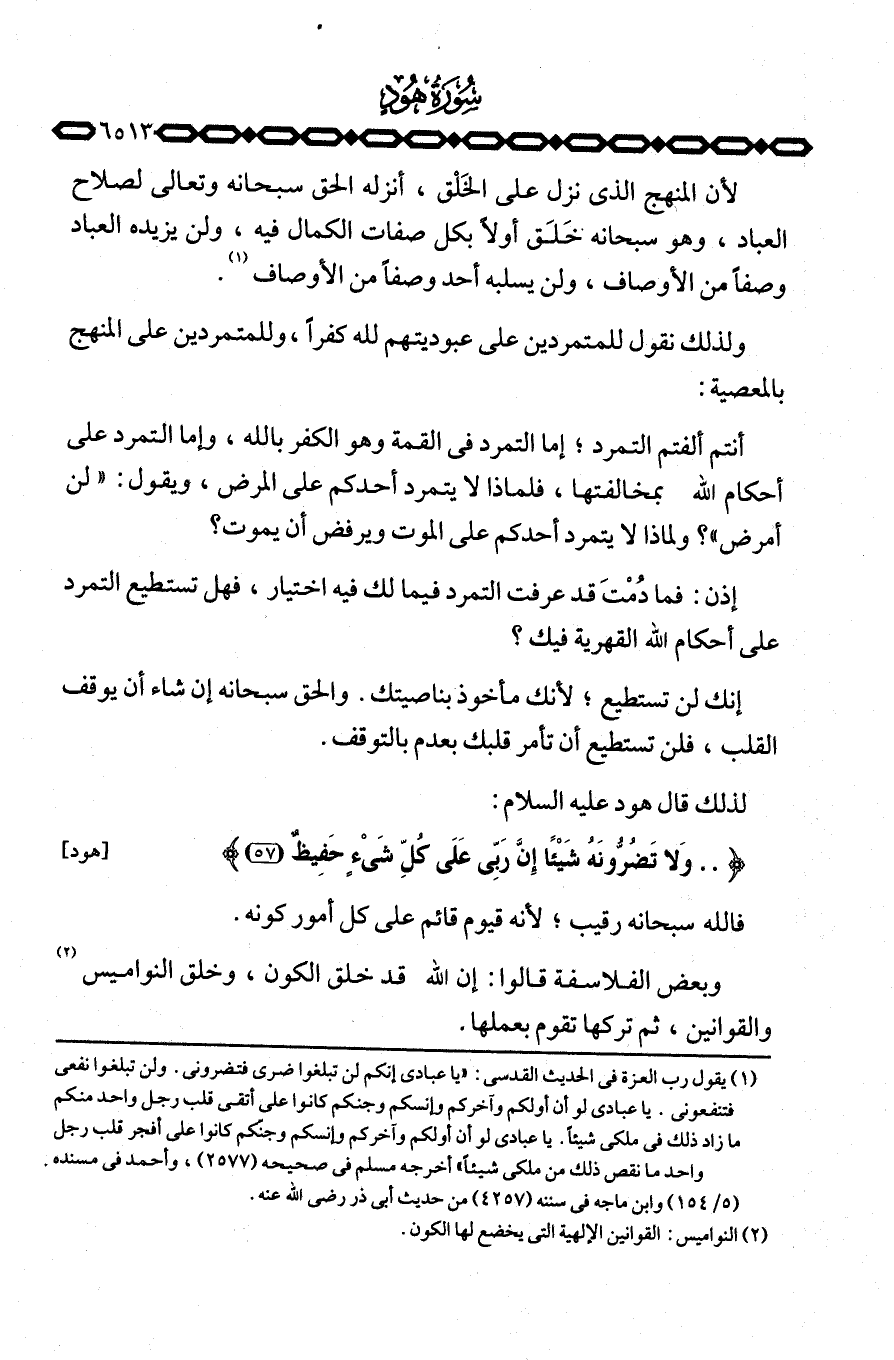 سُورَةُ هُودٍ
٦٥١٣
لأن المنهج الذى نزل على الخَلْق ، أنزله الحق سبحانه وتعالى لصلاح
العباد ، وهو سبحانه خَلَق أولاً بكل صفات الكمال فيه ، ولن يزيده العباد
وصفاً من الأوصاف ، ولن يسلبه أحد وصفاً من الأوصاف (١) .
ولذلك نقول للمتمردين على عبوديتهم لله كفراً ، وللمتمردين على المنهج
بالمعصية :
أنتم ألفتم التمرد ؛ إما التمرد فى القمة وهو الكفر بالله ، وإما التمرد على
أحكام الله بمخالفتها ، فلماذا لا يتمرد أحدكم على المرض ، ويقول : « لن
أمرض »؟ ولماذا لا يتمرد أحدكم على الموت ويرفض أن يموت؟
إذن : فما دُمْتَ قد عرفت التمرد فيما لك فيه اختيار ، فهل تستطيع التمرد
على أحكام الله القهرية فيك ؟
إنك لن تستطيع ؛ لأنك مأخوذ بناصيتك . والحق سبحانه إن شاء أن يوقف
القلب ، فلن تستطيع أن تأمر قلبك بعدم بالتوقف .
لذلك قال هود عليه السلام :
﴿ .. وَلا تَضُرُّونَهُ شَيْئًا إِنَّ رَبِّى عَلَى كُلِّ شَىْءٍ حَفِيظٌ (٥٧) ﴾ [هود]
فالله سبحانه رقيب ؛ لأنه قيوم قائم على كل أمور كونه .
وبعض الفلاسفة قالوا : إن الله قد خلق الكون ، وخلق النواميس (٢)
والقوانين ، ثم تركها تقوم بعملها .
(١) يقول رب العزة فى الحديث القدسى : «يا عبادى إنكم لن تبلغوا ضرى فتضرونى . ولن تبلغوا نفعى
فتنفعونى . يا عبادى لو أن أولكم وآخركم وإنسكم وجنكم كانوا على أتقى قلب رجل واحد منكم
ما زاد ذلك فى ملكى شيئاً . يا عبادى لو أن أولكم وآخركم وإنسكم وجنّكم كانوا على أفجر قلب رجل
واحد ما نقص ذلك من ملكى شيئاً» أخرجه مسلم فى صحيحه (٢٥٧٧) ، وأحمد فى مسنده .
(٥/ ١٥٤) وابن ماجه فى سننه (٤٢٥٧) من حديث أبى ذر رضى الله عنه .
(٢) النواميس : القوانين الإلهية التى يخضع لها الكون .